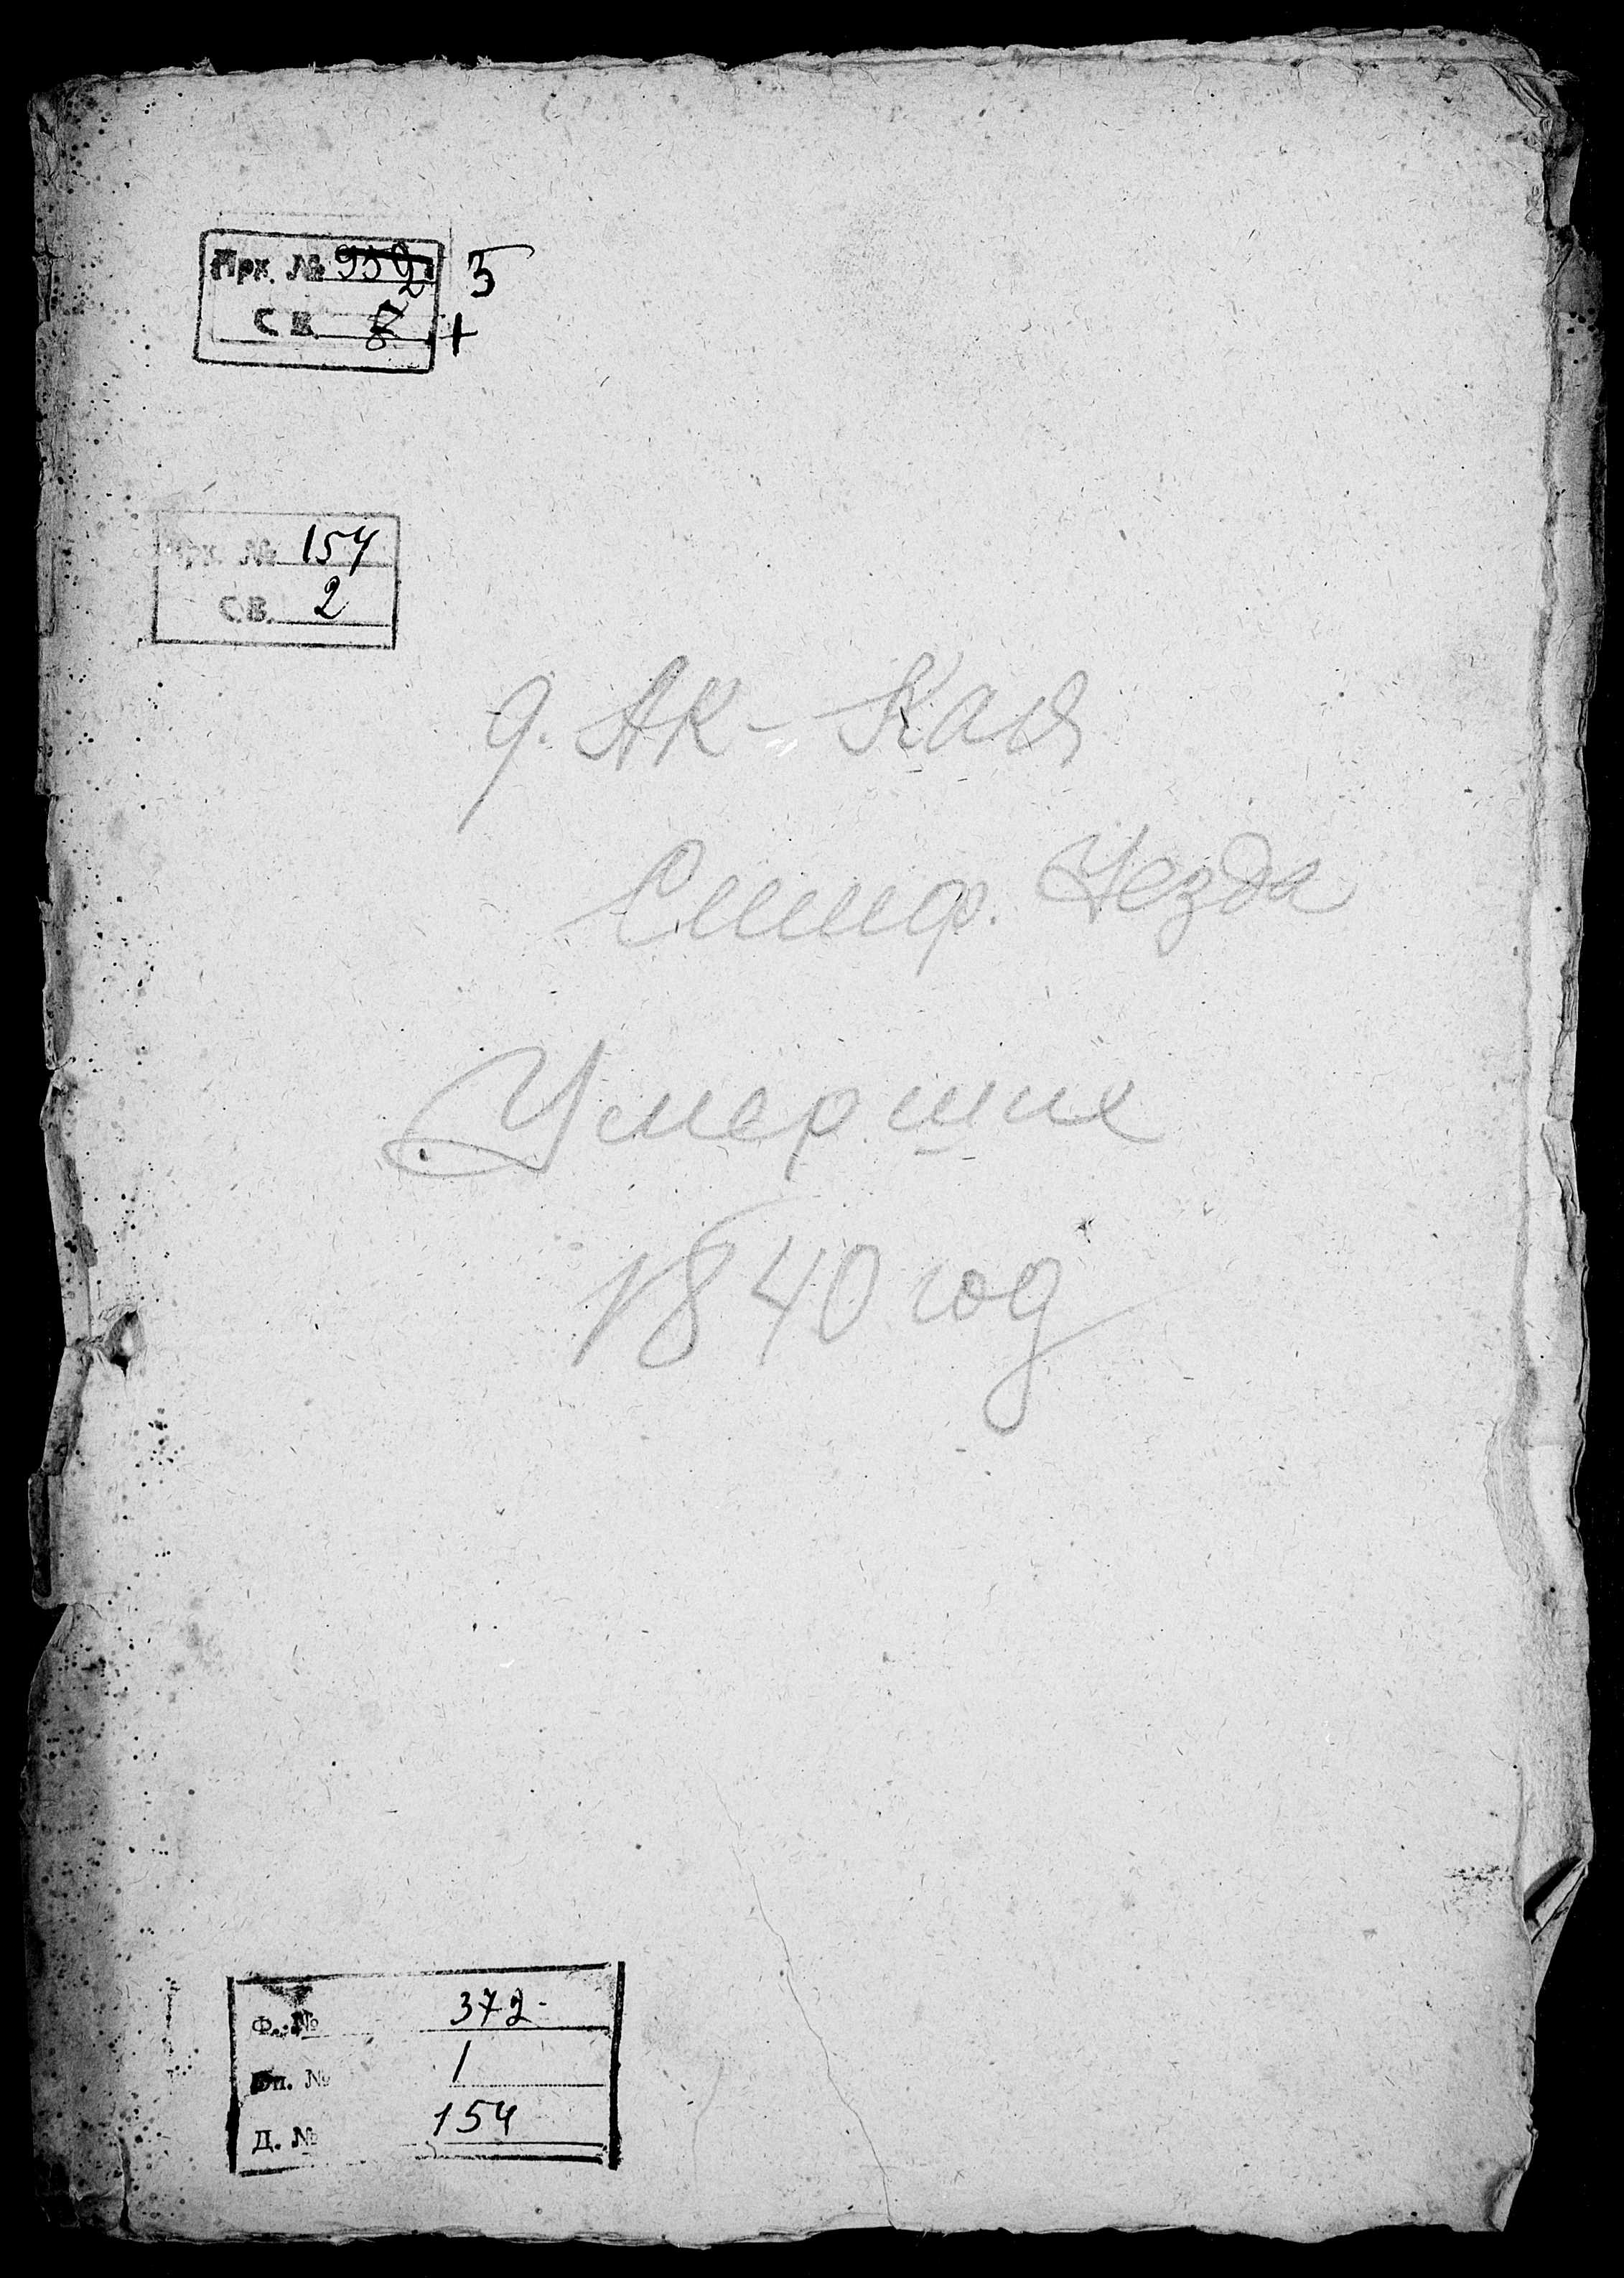 Арх. № 5
С В.
Арх. № 154
С В. 2
д. Ак-Кая
Симф. Уезда
Умершие
1840 год
Ф. № 372
Оп. № 1
Д. № 154